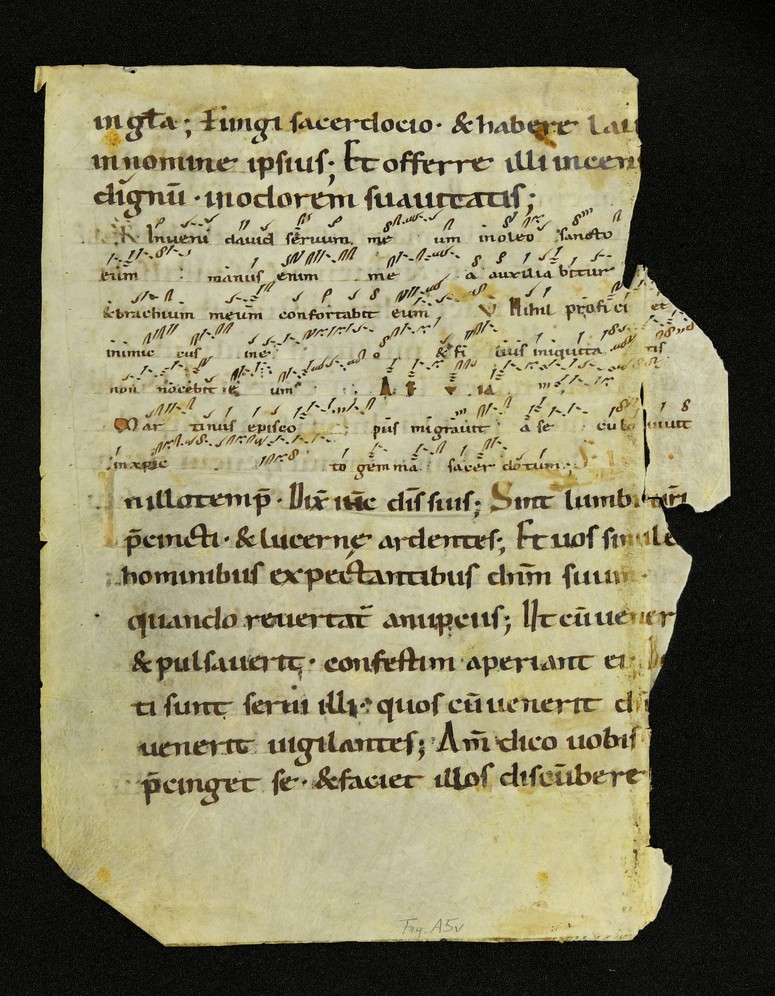 in gl̄a; Fungi sacerdocio· & habere lau
in nomine ipsius; Et offerre illi incen
dignū · in odorem suauitatis;
Inveni dauid seruum me um in oleo sancto
eum manus enim me a auxiliabitur
& brachium meum confortabit eum V Nihil profici et
inimic cus in e o & fi lius iniquita tis
non nocebit e um A l l e l u ia
Mar tinus episco pus migrauit a se culo uiuit
in xp̄ic to gemma sacer dotum;
In illo temp̄· Dix̄ iħc disc suis; Sint lumbi ur̄i
p̄cincti · & lucerne ardentes; Et uos simile
hominibus expectantibus dn̄m suum·
quando reuertat̄ a nupciis; Ut cū uener
& pulsauerit· confestim aperiant ei· Be
ti sunt serui illi· quos cū uenerit dn̄
uenerit uigilantes; Am̄ dico uobis
p̄cinget se· & faciet illos discūbere
Frg. A5v